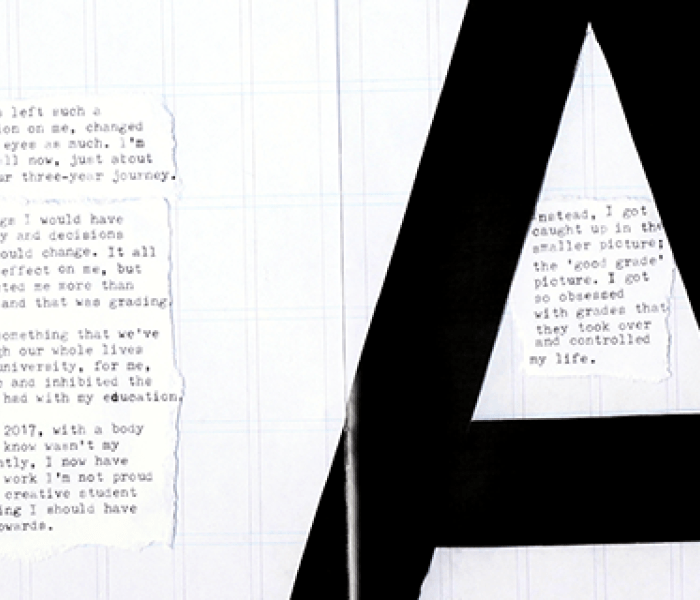 left such a
on me, changed
eyes as much. I'm
now, just about
three-year journey.
I would have
and decisions
change. It all
effect on me, but
me more than
and that was grading.
something that we've
our whole lives
university, for me,
and inhibited the
had with my education.
2017, with a body
know wasn't my
I now have
work I'm not proud
creative student
I should have
towards.
A
Instead, I got
caught up in the
smaller picture;
the 'good grade'
picture. I got
so obsessed
with grades that
they took over
and controlled
my life.